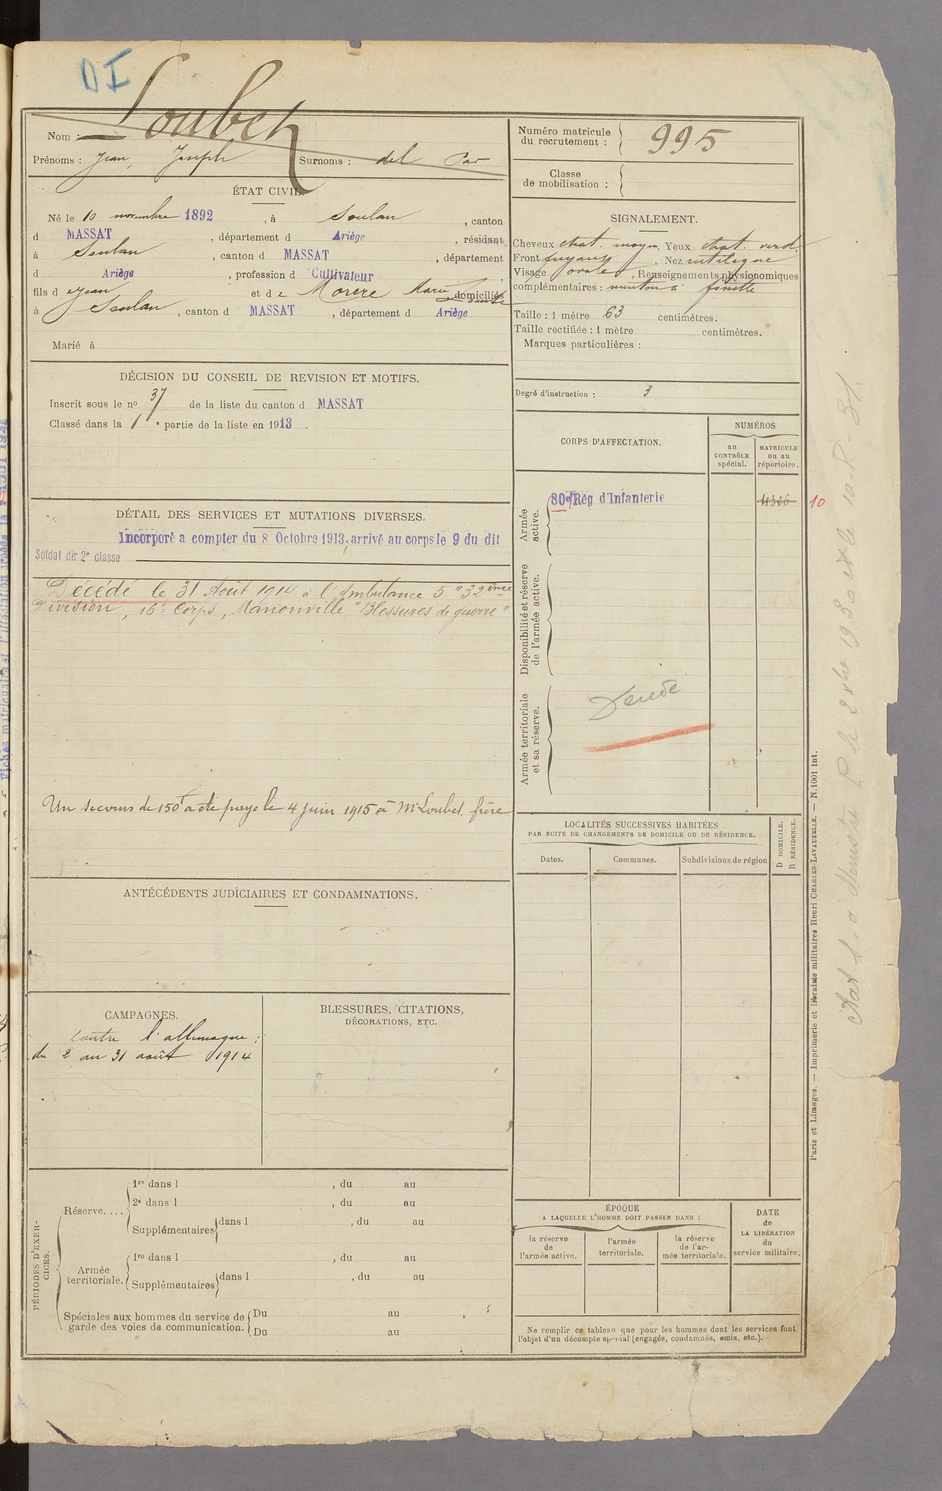 DI
Nom : Loubet
Prénoms : Jean Joseph Surnoms : del Par
ÉTAT CIVIL.
Né le 10 novembre 1892, à Soulan, canton
d MASSAT, département d Ariège, résidant
à Soulan, canton d MASSAT, département
d Ariège, profession d Cultivateur
fils d Jean et de Morere Marie Louise domiciliés
à Soulan, canton d MASSAT, département d Ariège
Marié à
DÉCISION DU CONSEIL DE REVISION ET MOTIFS.
Inscrit sous le no 37 de la liste du canton d MASSAT
Classé dans la 1e partie de la liste en 1913.
DÉTAIL DES SERVICES ET MUTATIONS DIVERSES.
Incorporé a compter du 8 Octobre 1913, arrivé au corps le 9 du dit
Soldat de 2e classe
Décédé le 31 Août 1914 à l'Ambulance 5 "32ème
Division, 16e Corps, Manonville "Blessures de guerre"
Un secours de 150f a été payé le 4 juin 1915 à Mr Loubet frère
ANTÉCÉDENTS JUDICIAIRES ET CONDAMNATIONS.
CAMPAGNES.
Contre l'allemagne :
du 2 au 31 août 1914
BLESSURES, CITATIONS,
DÉCORATIONS, ETC.
PÉRIODES D'EXER-
CICES.
Réserve....
1re dans l , du au
2e dans l , du au
Supplémentaires dans l , du au
Armée
territoriale.
1re dans l , du au
Supplémentaires dans l , du au
Spéciales aux hommes du service de
garde des voies de communication.
Du au
Du au
Numéro matricule
du recrutement : 995
Classe
de mobilisation :
SIGNALEMENT.
Cheveux chat. moyen, Yeux chat. verd
Front fuyant, Nez rectiligne
Visage ovale, Renseignements physionomiques
complémentaires : menton à fossette
Taille : 1 mètre 63 centimètres.
Taille rectifiée : 1 mètre centimètres.
Marques particulières :
Degré d'instruction : 3
CORPS D'AFFECTATION.
NUMÉROS
au
CONTRÔLE
spécial.
MATRICULE
ou au
répertoire.
Armée
active.
80e Rég d'Infanterie
10
Disponibilité et réserve
de l'armée active.
Armée territoriale
et sa réserve.
LOCALITÉS SUCCESSIVES HABITÉES
PAR SUITE DE CHANGEMENTS DE DOMICILE OU DE RÉSIDENCE.
D DOMICILE.
R RÉSIDENCE.
Dates.
Communes.
Subdivisions de région
ÉPOQUE
A LAQUELLE L'HOMME DOIT PASSER DANS :
la réserve
de
l'armée active.
l'armée
territoriale.
la réserve
de l'ar-
mée territoriale.
DATE
de
LA LIBÉRATION
du
service militaire.
Ne remplir ce tableau que pour les hommes dont les services font
l'objet d'un décompte spécial (engagés, condamnés, omis, etc.).
Paris et Limoges. — Imprimerie et librairie militaires Henri CHARLES-LAVAUZELLE. — N. 1001 int.